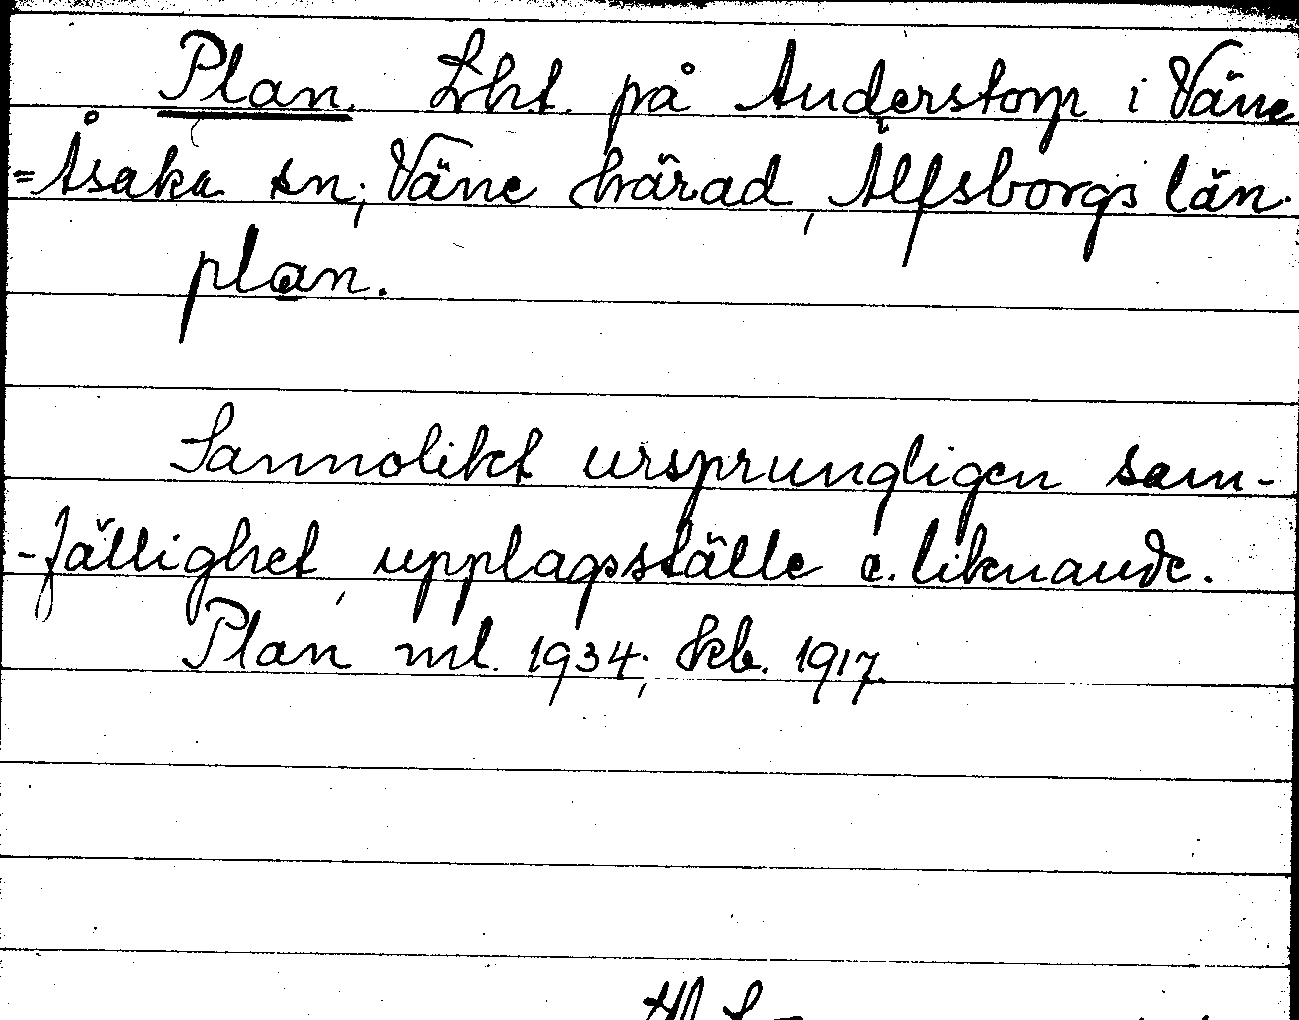 Plan. Lht. på Anderstorp i Väne
=Åsaka sn; Väne härad, Älfsborgs län.
plan.
Sannolikt ursprungligen sam-
-fällighet, upplagsställe e. liknande.
Plan ml. 1934; Skb. 1917.